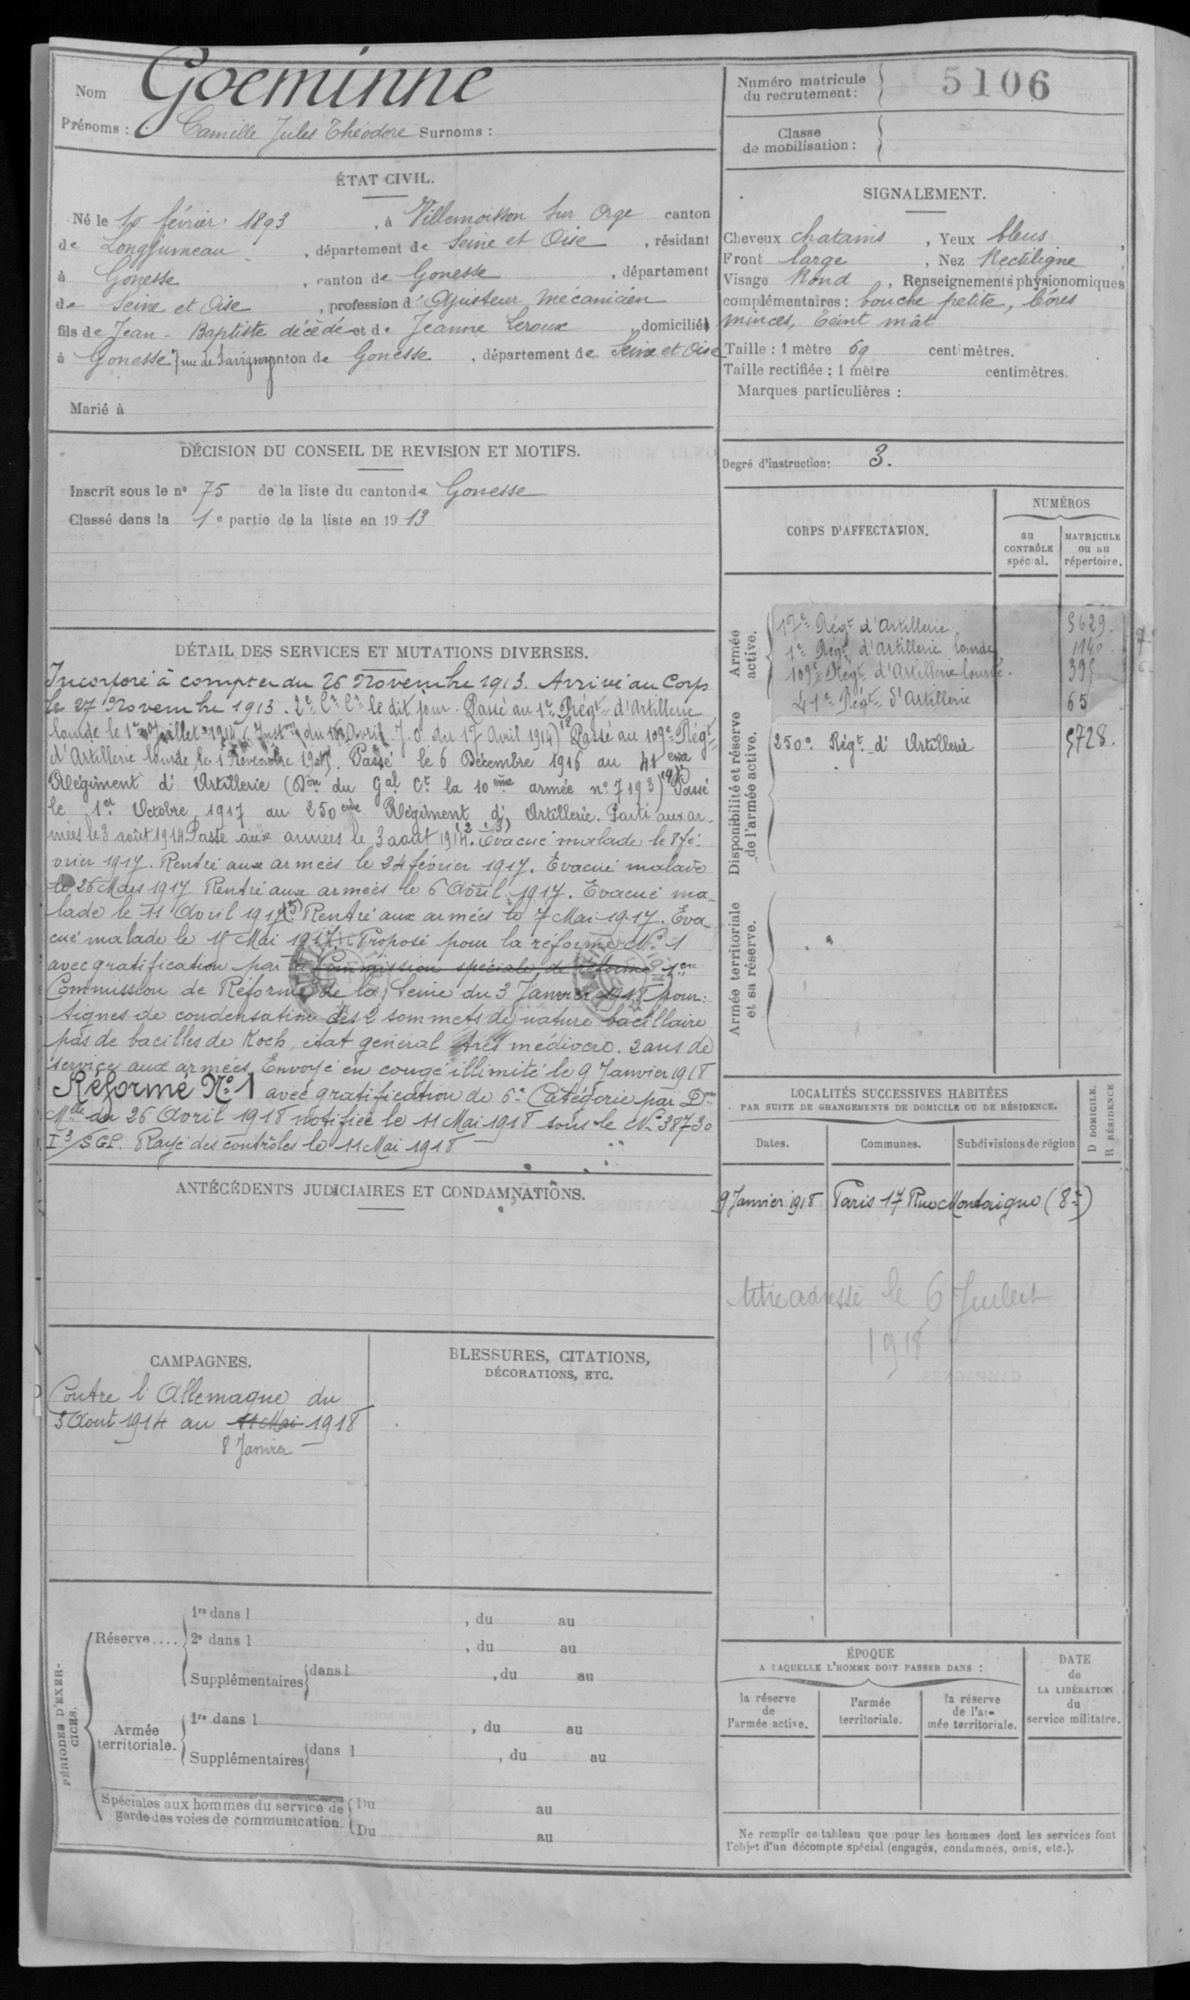 Nom Goeminne
Prénoms : Camille Jules Théodore Surnoms :
Numéro matricule du recrutement : 5106
Classe de mobilisation :
ÉTAT CIVIL.
Né le février 1893, à Villemoisson sur Orge canton
de Longjumeau, département de Seine et Oise, résidant
à Gonesse, canton de Gonesse, département
de Seine et Oise, profession d'Ajusteur mécanicien
fils de Jean-Baptiste décédé et de Jeanne Leroux domiciliés
à Gonesse rue de canton de Gonesse, département de Seine et Oise
Marié à
SIGNALEMENT.
Cheveux chatains, Yeux bleus,
Front large, Nez Rectiligne,
Visage Rond, Renseignements physionomiques
complémentaires : bouche petite, lèvres
minces, teint mât
Taille : 1 mètre 69 centimètres.
Taille rectifiée : 1 mètre centimètres.
Marques particulières :
DÉCISION DU CONSEIL DE REVISION ET MOTIFS.
Inscrit sous le n° 75 de la liste du canton de Gonesse
Classé dans la 1e partie de la liste en 1913
Degré d'instruction : 3.
DÉTAIL DES SERVICES ET MUTATIONS DIVERSES.
Incorporé à compter du 26 Novembre 1913. Arrivé au Corps
le 27 Novembre 1913. 2e Cr Cr le dit jour. Passé au 1er Régt d'Artillerie
lourde le 1er Juillet 1914 (Instron du Avril J.O. du 17 Avril 1914) Passé au 109e Régt
d'Artillerie lourde le 1er Novembre 1915. Passé le 6 Décembre 1916 au 41eme
Régiment d'Artillerie (Don du Gal Ct la 10eme armée n° 7193) Passé
le 1er Octobre 1917 au 250eme Régiment d'Artillerie. Parti aux ar-
mées le 3 août 1914 Passé aux armées le 3 août 1914. Evacué malade le 8 fé-
vrier 1917. Rentré aux armées le 24 février 1917. Evacué malade
le 26 Mars 1917 Rentré aux armées le 6 Avril 1917. Evacué ma-
lade le 11 Avril 1917. Rentré aux armées le 7 Mai 1917. Eva-
cué malade le 11 Mai 1917. Proposé pour la réforme N° 1
avec gratification par la Commission spéciale de réforme 1ere
Commission de Réforme de la Seine du 3 Janvier 1918 pour :
signes de condensation des 2 sommets de nature bacillaire
pas de bacilles de Koch, état général très médiocre. 2 ans de
service aux armées. Envoyé en congé illimité le 9 Janvier 1918
Réformé N° 1 avec gratification de 6e Catégorie par Don
Mlle du 26 Avril 1918 notifiée le 11 Mai 1918 sous le N° 38730
I3/SGP. Rayé des contrôles le 11 Mai 1918
CORPS D'AFFECTATION.
NUMÉROS
au CONTRÔLE spécial.
MATRICULE ou au répertoire.
Armée active.
17e Régt d'Artillerie 5629.
1er Régt d'Artillerie lourde 1140.
109e Régt d'Artillerie lourde.
41e Régt d'Artillerie 65
Disponibilité et réserve de l'armée active.
250e Régt d'Artillerie 5728.
Armée territoriale et sa réserve.
LOCALITÉS SUCCESSIVES HABITÉES
PAR SUITE DE CHANGEMENTS DE DOMICILE OU DE RÉSIDENCE.
Dates. Communes. Subdivisions de région
D DOMICILE. R RÉSIDENCE
9 Janvier 1918 Paris 17 Rue Montaigne (8e)
Titre adressé le 6 Juillet
1918
ANTÉCÉDENTS JUDICIAIRES ET CONDAMNATIONS.
CAMPAGNES.
Contre l'Allemagne du
3 Aout 1914 au 11 Mai 1918
8 Janvier
BLESSURES, CITATIONS,
DÉCORATIONS, ETC.
PÉRIODES D'EXERCICES.
Réserve....
1re dans l , du au
2e dans l , du au
Supplémentaires dans l , du au
Armée territoriale.
1re dans l , du au
Supplémentaires dans l , du au
Spéciales aux hommes du service de
garde des voies de communication.
Du au
Du au
ÉPOQUE
A LAQUELLE L'HOMME DOIT PASSER DANS :
la réserve de l'armée active.
l'armée territoriale.
la réserve de l'armée territoriale.
DATE de LA LIBÉRATION du service militaire.
Ne remplir ce tableau que pour les hommes dont les services font
l'objet d'un décompte spécial (engagés, condamnés, omis, etc.).